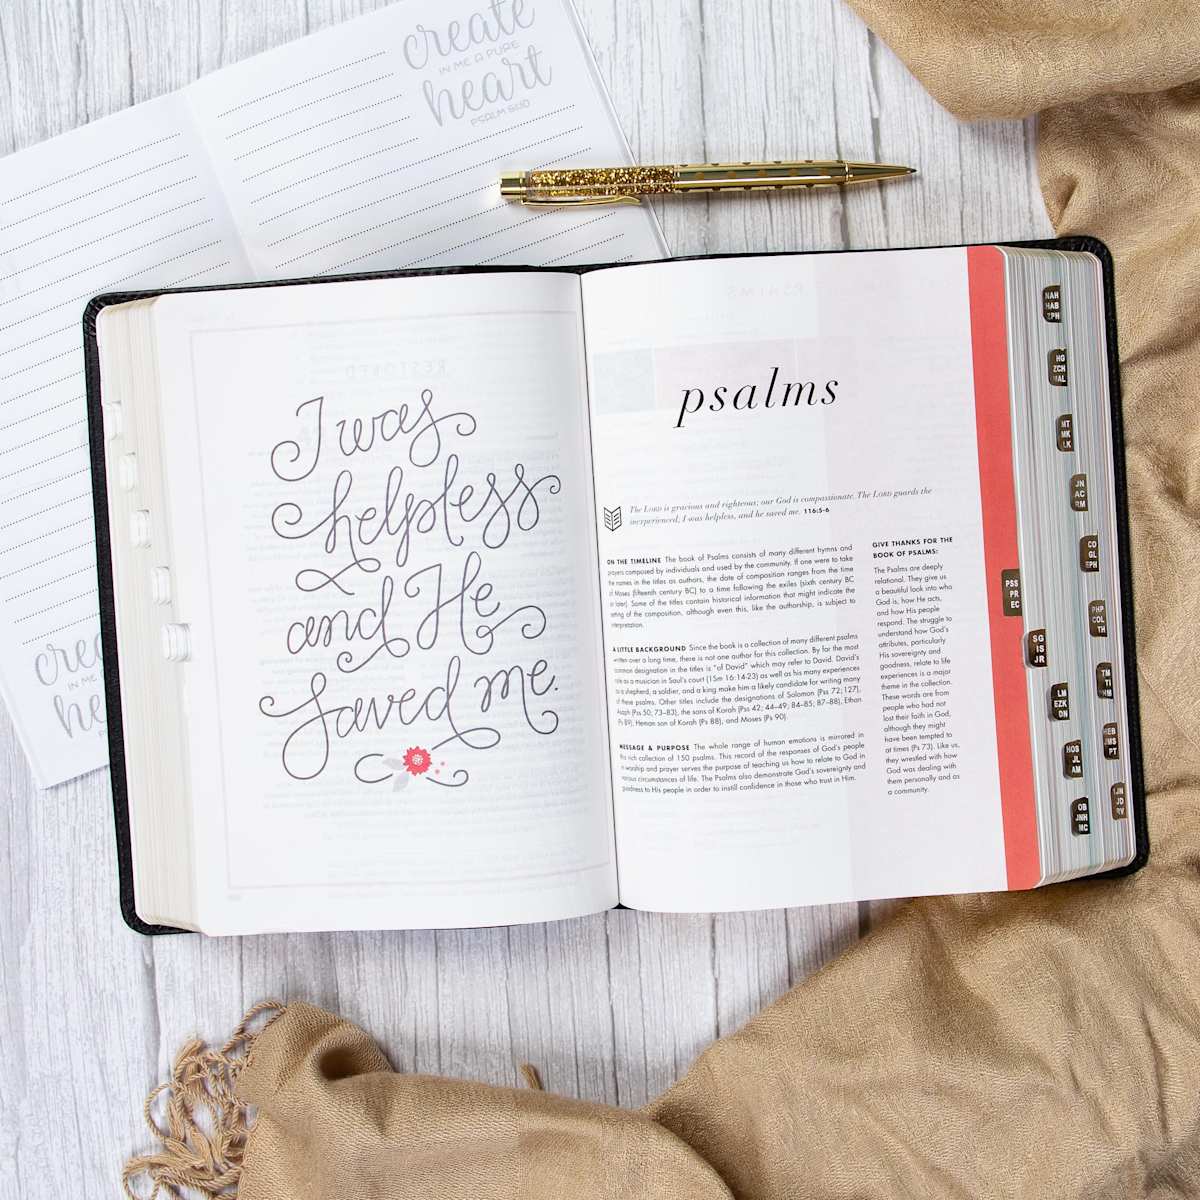 create
IN ME A PURE
heart
PSALM 51:10
I was
helpless
and He
saved me.
psalms
The LORD is gracious and righteous; our God is compassionate. The LORD guards the
inexperienced; I was helpless, and he saved me. 116:5-6
ON THE TIMELINE The book of Psalms consists of many different hymns and
prayers composed by individuals and used by the community. If one were to take
the names in the titles as authors, the date of composition ranges from the time
of Moses (fifteenth century BC) to a time following the exiles (sixth century BC
or later). Some of the titles contain historical information that might indicate the
setting of the composition, although even this, like the authorship, is subject to
interpretation.
A LITTLE BACKGROUND Since the book is a collection of many different psalms
written over a long time, there is not one author for this collection. By far the most
common designation in the titles is "of David" which may refer to David. David's
role as a musician in Saul's court (1Sm 16:14-23) as well as his many experiences
as a shepherd, a soldier, and a king make him a likely candidate for writing many
of these psalms. Other titles include the designations of Solomon (Pss 72; 127),
Asaph (Pss 50; 73–83), the sons of Korah (Pss 42; 44–49; 84–85; 87–88), Ethan
(Ps 89), Heman son of Korah (Ps 88), and Moses (Ps 90).
MESSAGE & PURPOSE The whole range of human emotions is mirrored in
this rich collection of 150 psalms. This record of the responses of God's people
in worship and prayer serves the purpose of teaching us how to relate to God in
various circumstances of life. The Psalms also demonstrate God's sovereignty and
goodness to His people in order to instill confidence in those who trust in Him.
GIVE THANKS FOR THE
BOOK OF PSALMS:
The Psalms are deeply
relational. They give us
a beautiful look into who
God is, how He acts,
and how His people
respond. The struggle to
understand how God's
attributes, particularly
His sovereignty and
goodness, relate to life
experiences is a major
theme in the collection.
These words are from
people who had not
lost their faith in God,
although they might
have been tempted to
at times (Ps 73). Like us,
they wrestled with how
God was dealing with
them personally and as
a community.
NAH
HAB
ZPH
HG
ZCH
MAL
MT
MK
LK
JN
AC
RM
CO
GL
EPH
PSS
PR
EC
PHP
COL
TH
SG
IS
JR
TM
TI
HM
LM
EZK
DN
HEB
JMS
PT
HOS
JL
AM
1JN
JD
RV
OB
JNH
MC
IN ME
heart